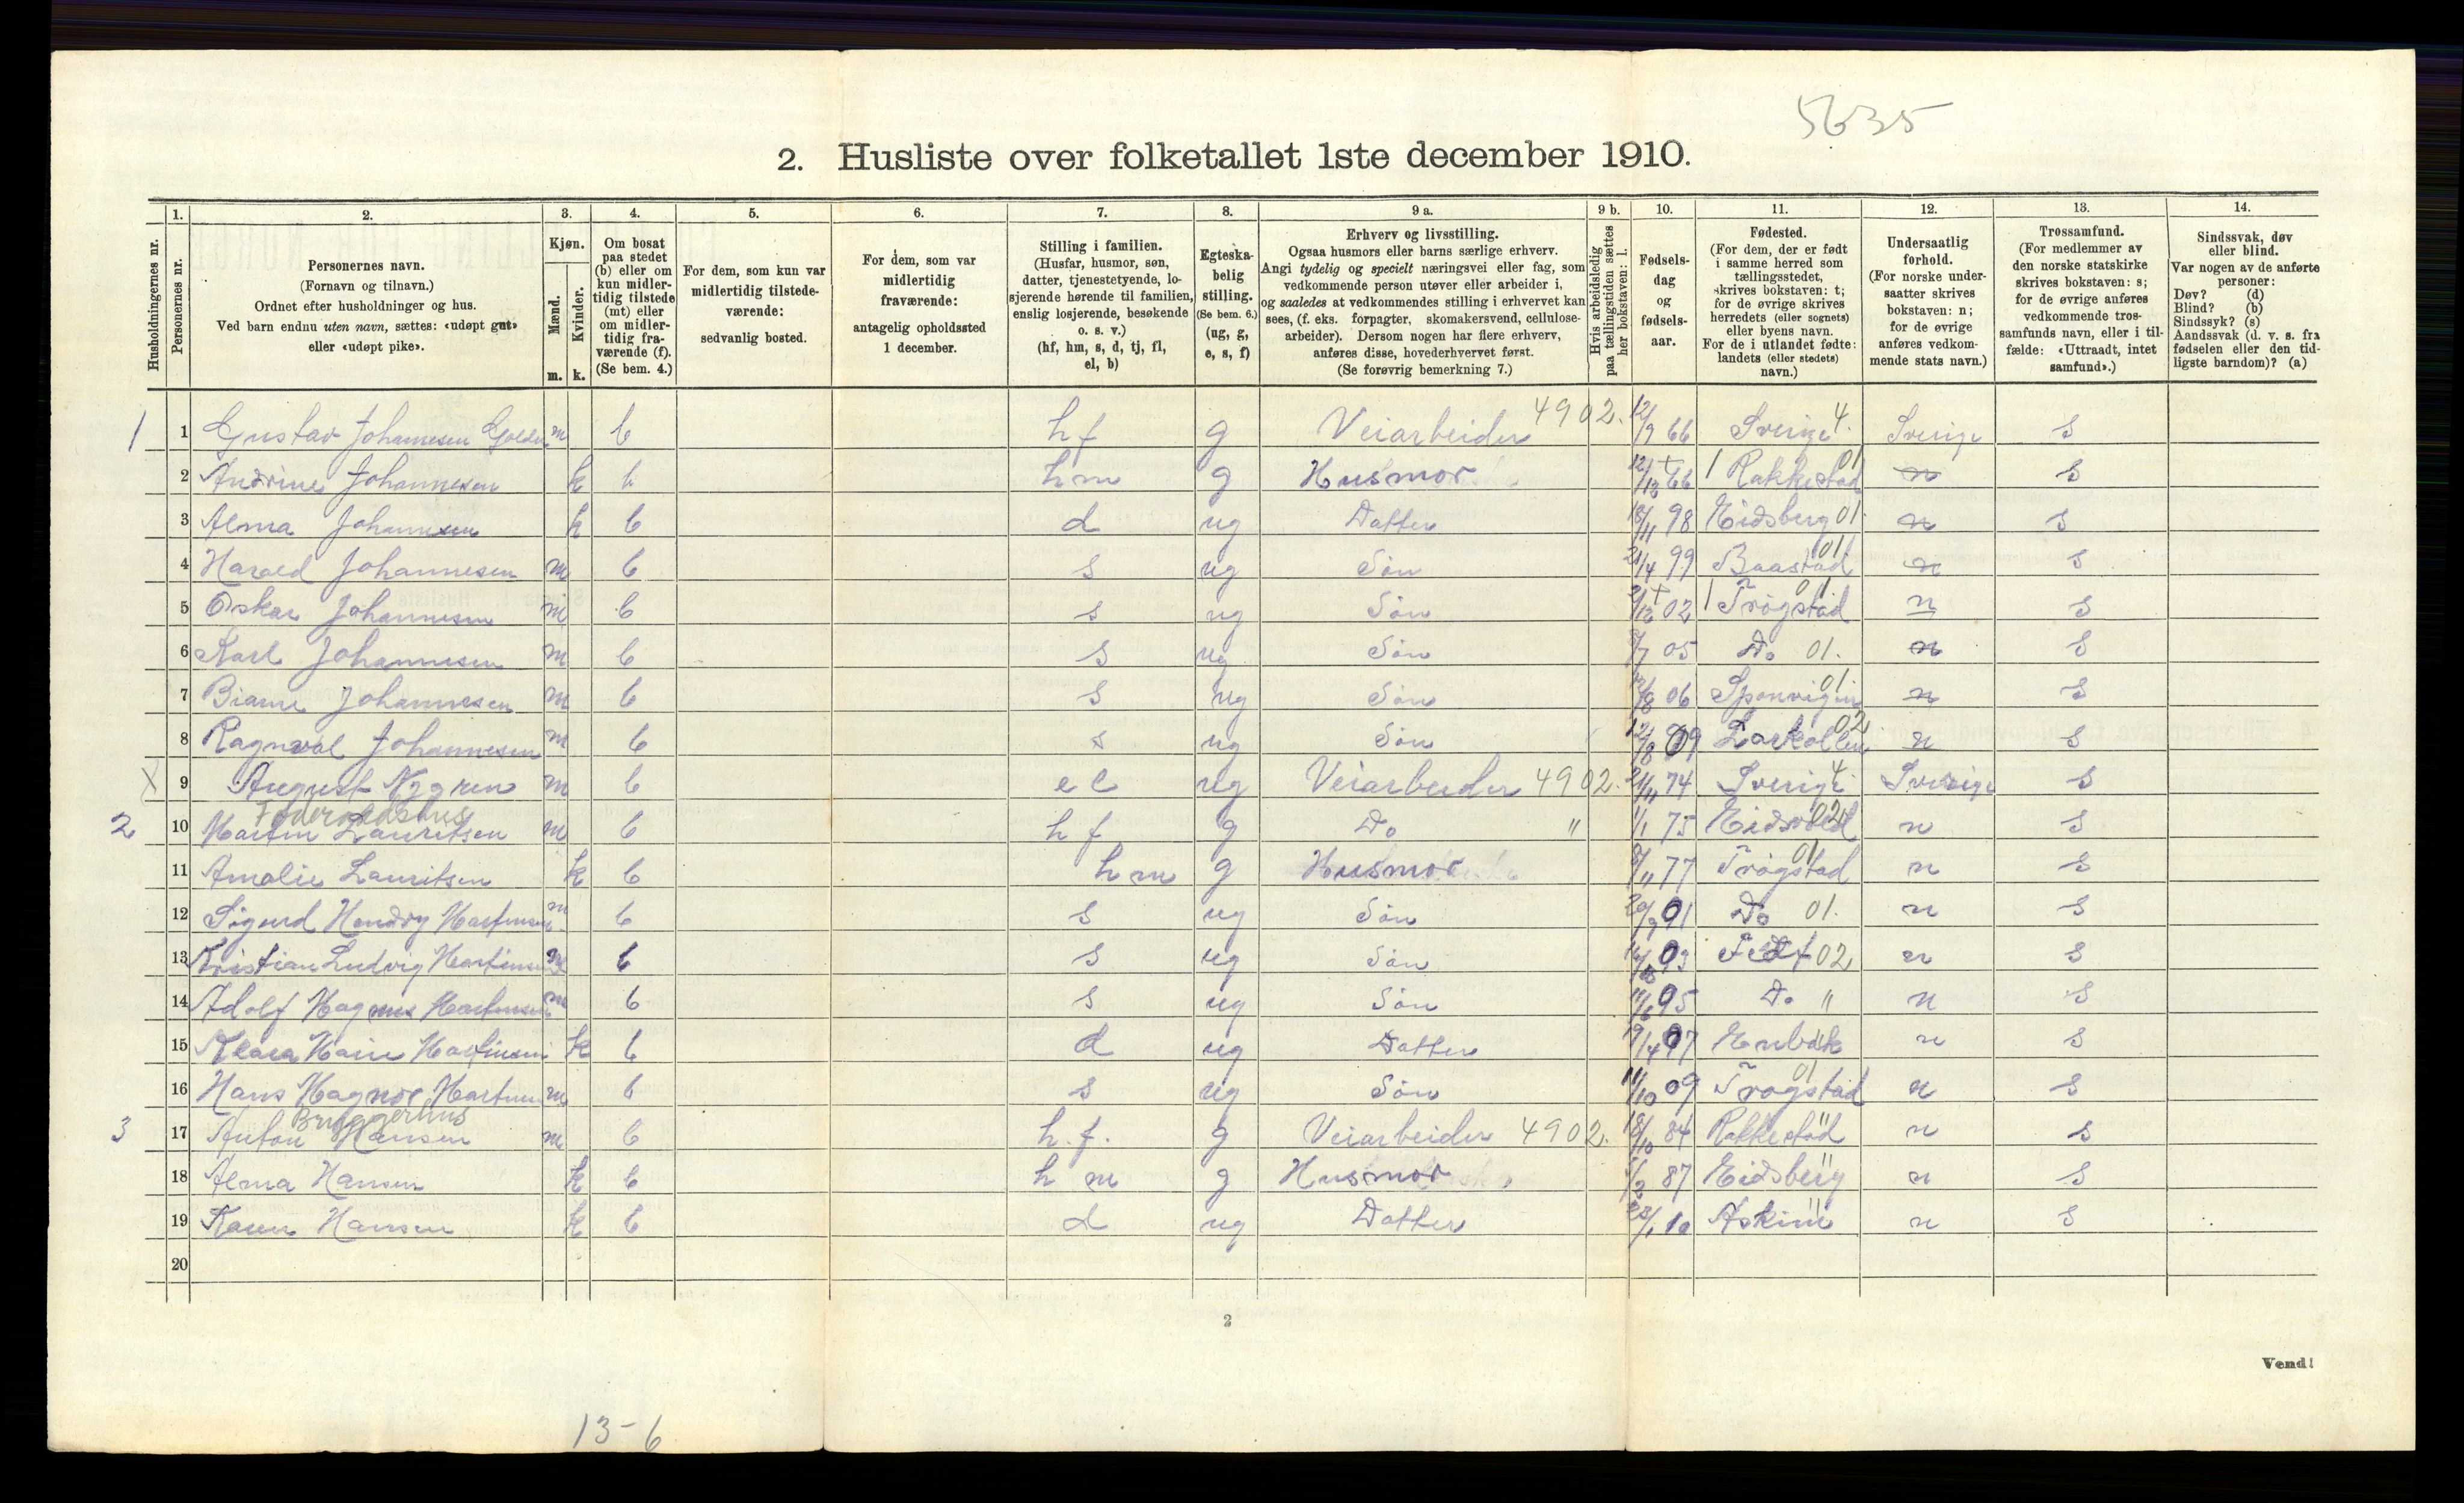 5635
2. Husliste over folketallet 1ste december 1910.
Husholdningernes nr.
1.
Personernes nr.
2.
Personernes navn.
(Fornavn og tilnavn.)
Ordnet efter husholdninger og hus.
Ved barn endnu uten navn, sættes: «udøpt gut»
eller «udøpt pike».
3.
Kjøn.
Mænd.
Kvinder.
m. k.
4.
Om bosat
paa stedet
(b) eller om
kun midler-
tidig tilstede
(mt) eller
om midler-
tidig fra-
værende (f).
(Se bem. 4.)
5.
For dem, som kun var
midlertidig tilstede-
værende:
sedvanlig bosted.
6.
For dem, som var
midlertidig
fraværende:
antagelig opholdssted
1 december.
7.
Stilling i familien.
(Husfar, husmor, søn,
datter, tjenestetyende, lo-
sjerende hørende til familien,
enslig losjerende, besøkende
o. s. v.)
(hf, hm, s, d, tj, fl,
el, b)
8.
Egteska-
belig
stilling.
(Se bem. 6.)
(ug, g,
e, s, f)
9 a.
Erhverv og livsstilling.
Ogsaa husmors eller barns særlige erhverv.
Angi tydelig og specielt næringsvei eller fag, som
vedkommende person utøver eller arbeider i,
og saaledes at vedkommendes stilling i erhvervet kan
sees, (f. eks. forpagter, skomakersvend, cellulose-
arbeider). Dersom nogen har flere erhverv,
anføres disse, hovederhvervet først.
(Se forøvrig bemerkning 7.)
9 b.
Hvis arbeidsledig
paa tællingstiden sættes
her bokstaven: l.
10.
Fødsels-
dag
og
fødsels-
aar.
11.
Fødested.
(For dem, der er født
i samme herred som
tællingsstedet,
skrives bokstaven: t;
for de øvrige skrives
herredets (eller sognets)
eller byens navn.
For de i utlandet fødte:
landets (eller stedets)
navn.)
12.
Undersaatlig
forhold.
(For norske under-
saatter skrives
bokstaven: n;
for de øvrige
anføres vedkom-
mende stats navn.)
13.
Trossamfund.
(For medlemmer av
den norske statskirke
skrives bokstaven: s;
for de øvrige anføres
vedkommende tros-
samfunds navn, eller i til-
fælde: «Uttraadt, intet
samfund».)
14.
Sindssvak, døv
eller blind.
Var nogen av de anførte
personer:
Døv? (d)
Blind? (b)
Sindssyk? (s)
Aandssvak (d. v. s. fra
fødselen eller den tid-
ligste barndom)? (a)
1 1 Gustav Johannesen m b hf g Veiarbeider 4902. 12/9 66 Sverige 4. Sverige s
2 Andrine Johannesen k b hm g Husmor 12/12 66 Rakkestad 01 n s
3 Alma Johannesen k b d ug Datter 18/11 98 Eidsberg 01. n s
4 Harald Johannesen m b s ug Søn 21/4 99 Baastad 01 n s
5 Oskar Johannesen m b s ug Søn 2/12 02 Trøgstad 01 n s
6 Karl Johannesen m b s ug Søn 05 Do 01. n s
7 Biarne Johannesen m b s ug Søn 06 01. n s
8 Ragnval Johannesen m b s ug Søn 12/8 09 Larkollen 02 n s
X 9 August Nygren m b el ug Veiarbeider 4902. 21/11 74 Sverige 4. Sverige s
Føderaadshus
2 10 Martin Lauritsen m b hf g Do " 1/1 75 Eidsvold 02 n s
11 Amalie Lauritsen k b hm g Husmor 8/11 77 Trøgstad 01 n s
12 Sigurd Hendry Martinsen m b s ug Søn 20/9 01 Do 01. n s
13 Kristian Ludvig Martinsen m b s ug Søn 03 Fet 02 n s
14 Adolf Magnus Martinsen m b s ug Søn 11/6 05 Do " n s
15 Klara Marie Martinsen k b d ug Datter 19/4 07 Enebak " n s
16 Hans Magnor Martinsen m b s ug Søn 11/10 09 Trøgstad 01 n s
Bryggerhus
3 17 Anton Hansen m b h.f. g Veiarbeider 4902. 18/10 84 Rakkestad " n s
18 Alma Hansen k b hm g Husmor 5/2 87 Eidsberg " n s
19 Karen Hansen k b d ug Datter 28/1 10 Askim " n s
20
2
Vend!
13-6